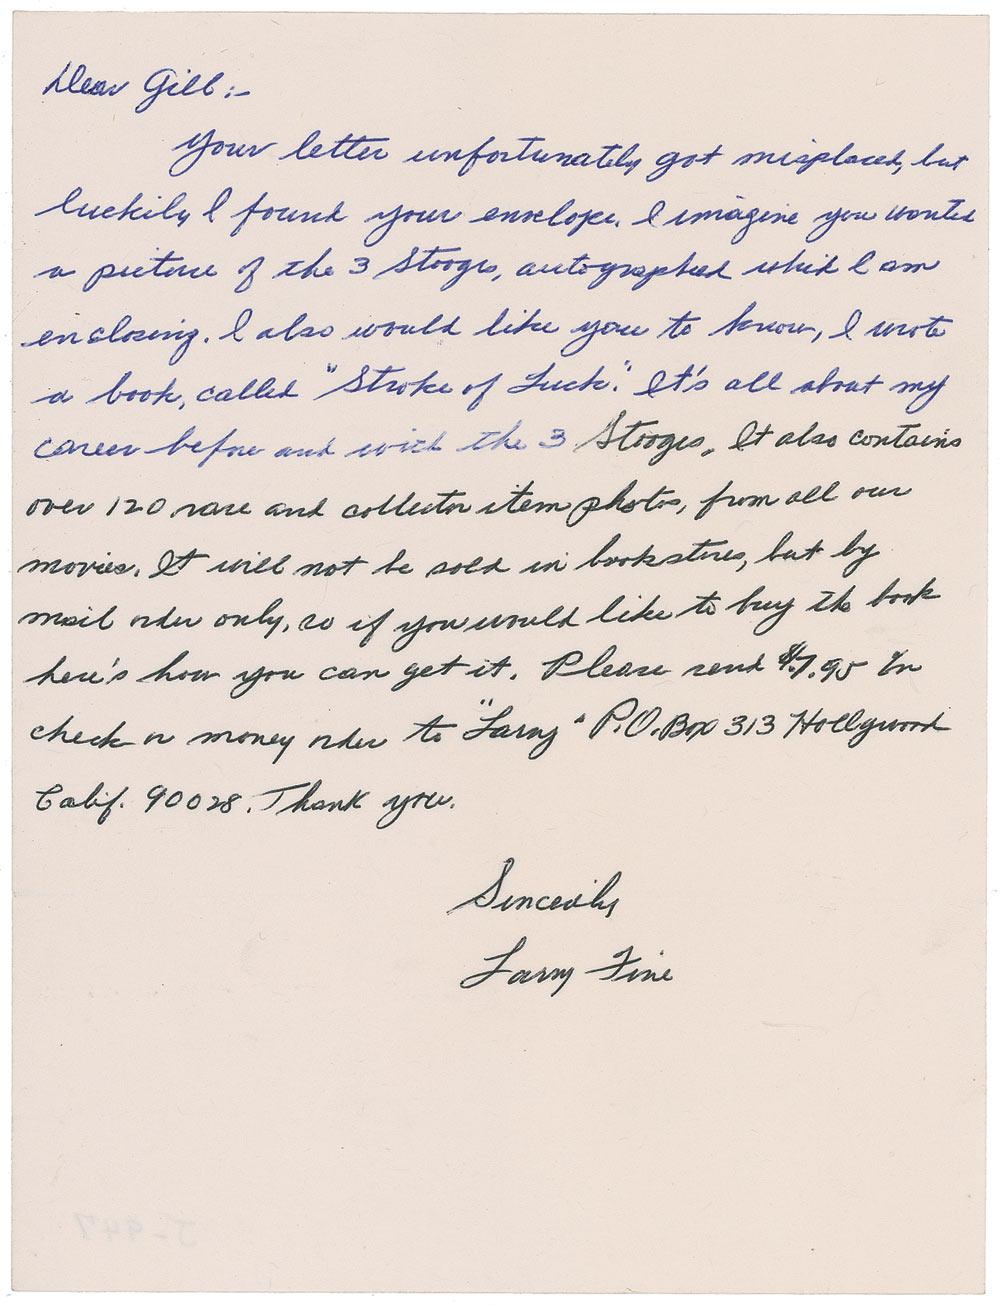 Dear Gill:-
Your letter unfortunately got misplaced, but
luckily I found your envelope. I imagine you wanted
a picture of the 3 Stooges, autographed which I am
enclosing. I also would like you to know, I wrote
a book, called "Stroke of Luck". It's all about my
career before and with the 3 Stooges. It also contains
over 120 rare and collector item photos, from all our
movies. It will not be sold in bookstores, but by
mail order only, so if you would like to buy the book
here's how you can get it. Please send $7.95 in
check or money order to "Larry" P.O. Box 313 Hollywood
Calif. 90028. Thank you.
Sincerely
Larry Fine
J-947